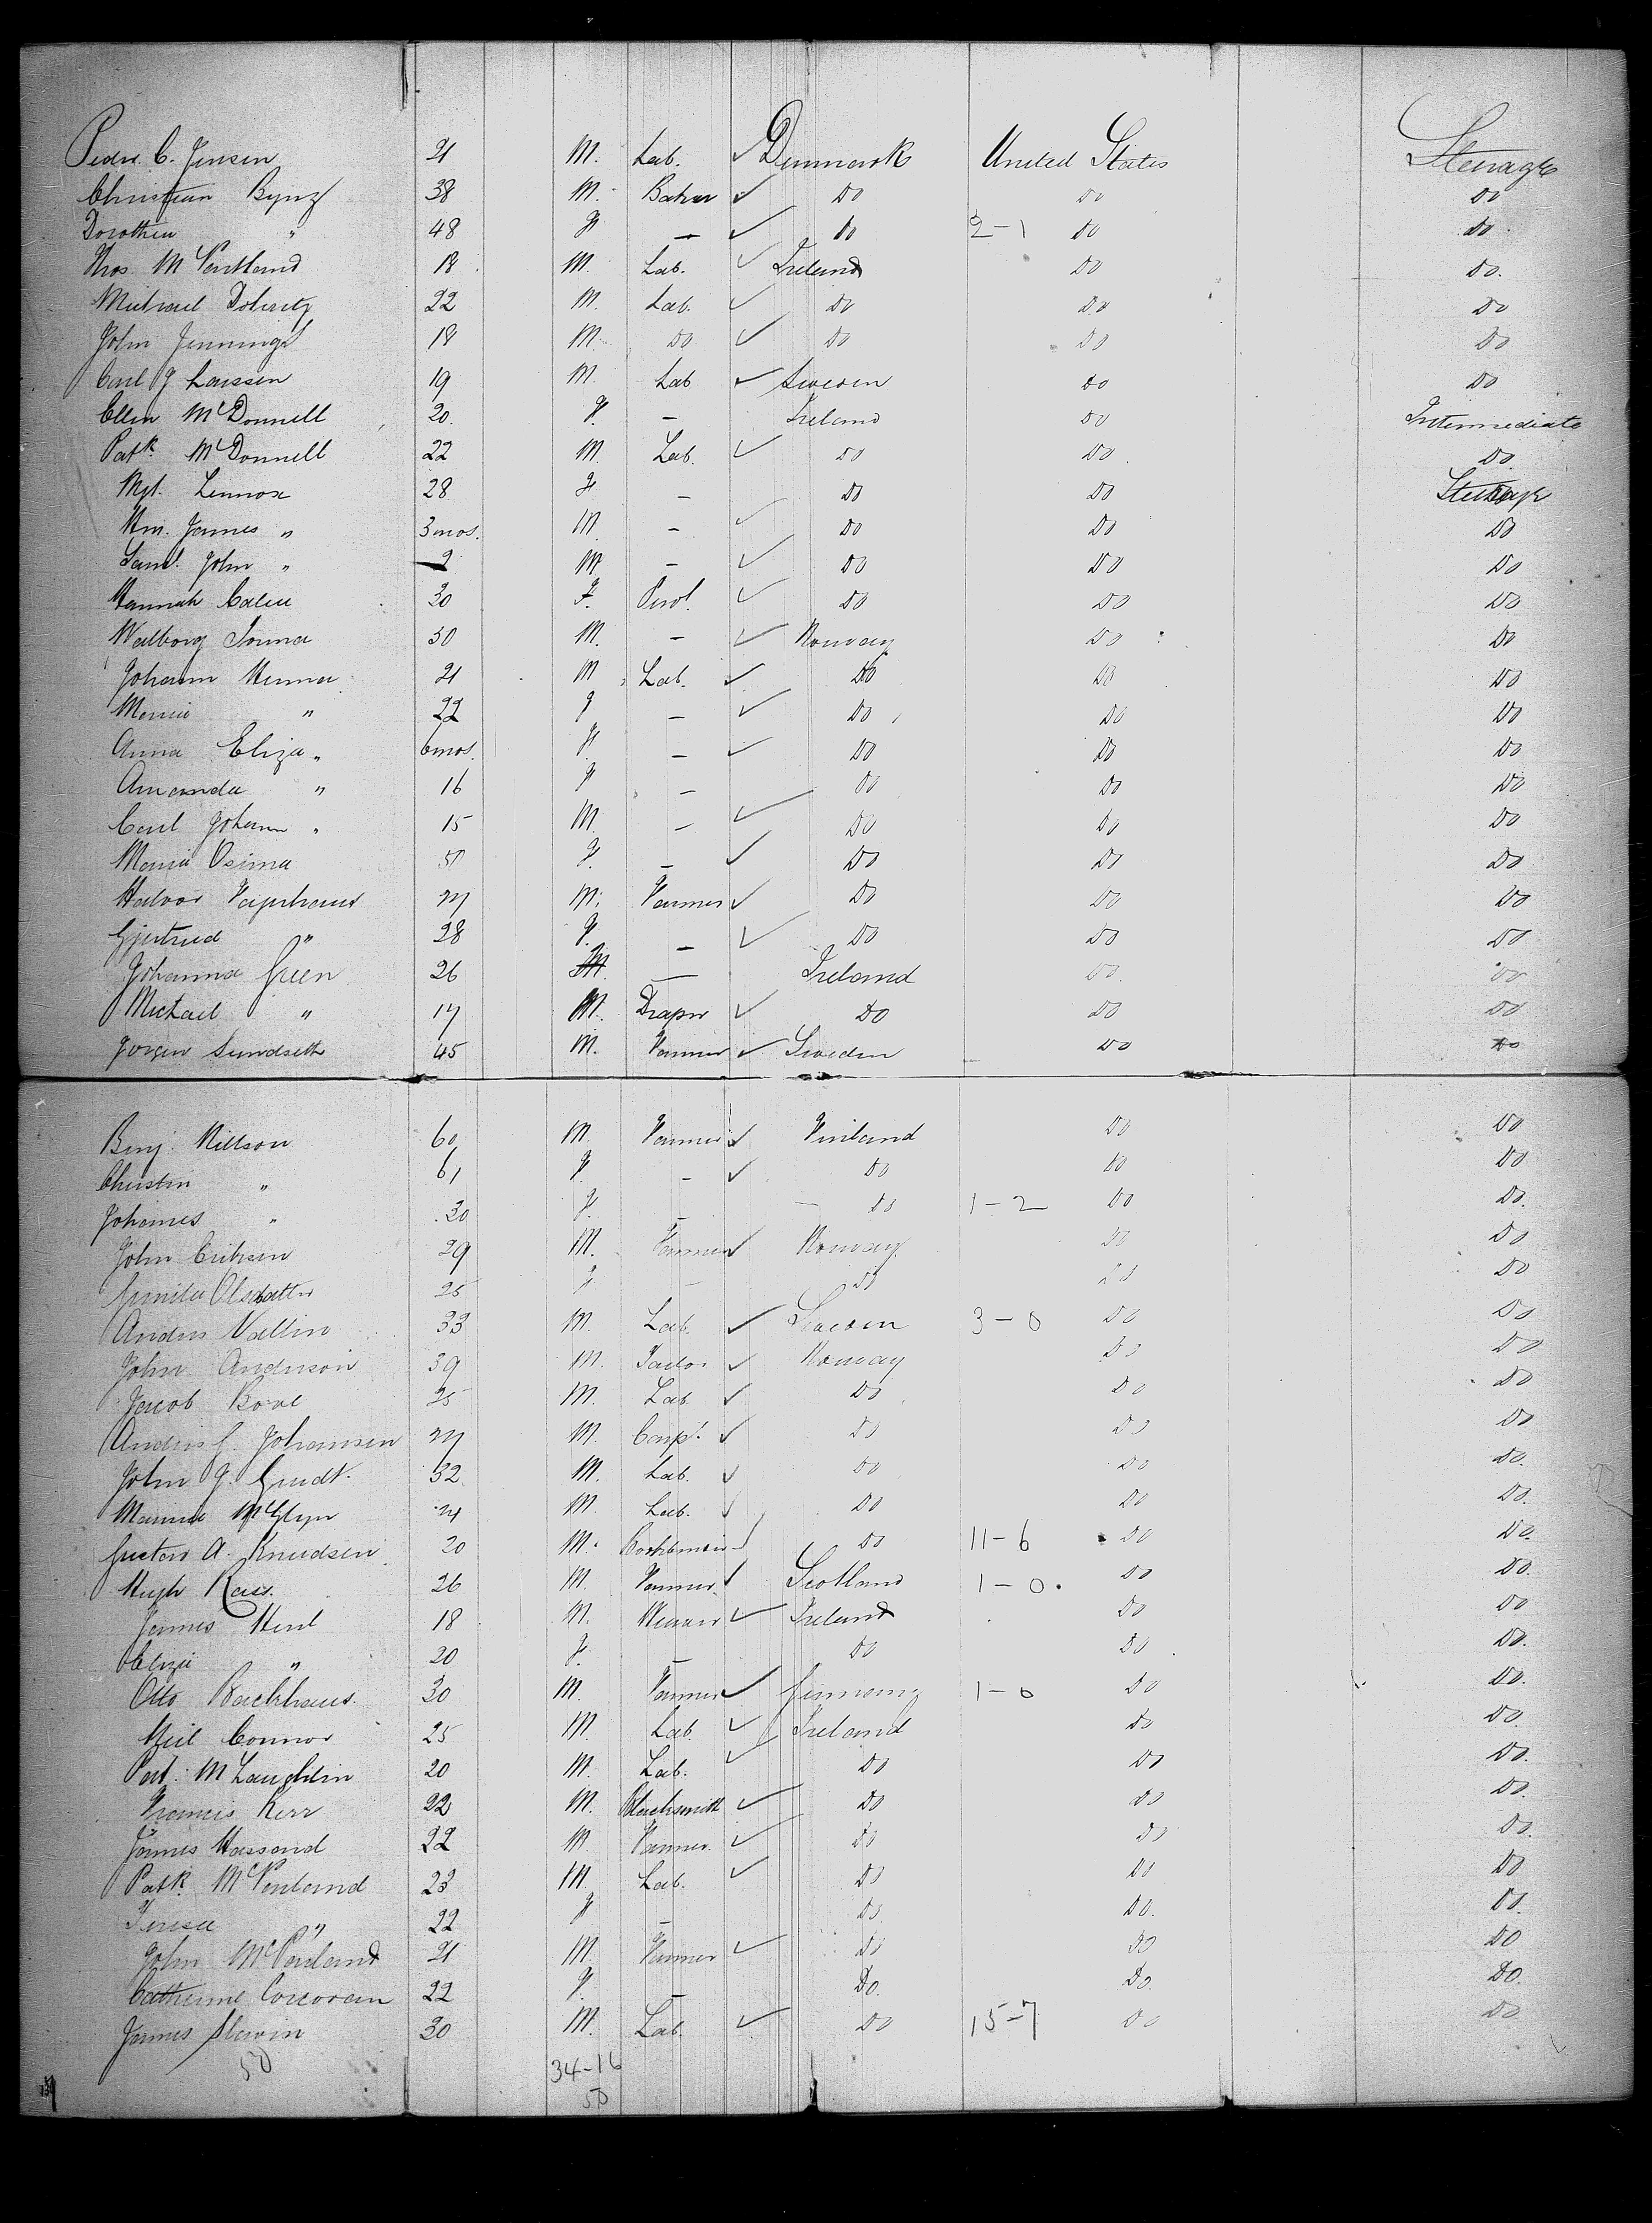 Peder C. Jensen 21 M. Lab. ✓ Denmark United States Steerage
Christian Bynz 38 M. Baker ✓ Do Do Do
Dorothea " 48 F — ✓ Do 2-1 Do Do
Thos. McPentland 18 M. Lab. ✓ Ireland Do Do.
Michael Doherty 22 M. Lab. ✓ Do Do Do
John Jennings 18 M. Do ✓ Do Do Do
Carl J Larssen 19 M. Lab ✓ Sweden Do Do
Ellen McDonnell 20. F. — Ireland Do Intermediate
Patk. McDonnell 22 M. Lab. ✓ Do Do. Do.
Mgt. Lennox 28 F — Do Do Steerage
Wm. James " 3 mos. M — ✓ Do Do Do
Saml. John " 2 M — ✓ Do Do Do
Hannah 30 F. ✓ Do Do Do
Walborg 50 M. — ✓ Norway Do Do
Johann 21 M Lab. ✓ Do Do Do
Maria " 22 F — ✓ Do Do Do
Anna Eliza " 6 mos. F — ✓ Do Do Do
Amanda " 16 F — Do Do Do
Carl Johann " 15 M. — ✓ Do Do Do
Maria Osima 50 F. — ✓ Do Do Do
Halvor 27 M. Farmer ✓ Do Do Do
Gjertrud " 28 F. — ✓ Do Do Do
Johanna Green 26 — Ireland Do. Do
Michael " 17 M. Draper ✓ Do Do Do
Jorgen Sundseth 45 M. Farmer ✓ Sweden Do Do
Benj. Nillson 60 M. Farmer ✓ Finland Do Do
Christin " 61 F. — ✓ Do Do Do
Johannes " 30 F. — Do 1-2 Do Do.
John Eriksen 29 M. Farmer ✓ Norway Do Do
Olsdatter 25 F — Do Do Do
Anders Vallin 33 M. Lab. ✓ Sweden 3-0 Do Do
John Anderson 39 M. Tailor ✓ Norway Do Do
Jacob 25 M. Lab. ✓ Do Do Do
Anders J. Johansen 27 M. Carp. ✓ Do Do Do
John G. 32 M. Lab. ✓ Do Do Do.
McGlyn 24 M. Lab. ✓ Do Do Do.
Gustav A. Knudsen 20 M. ✓ Do 11-6 Do Do.
Hugh Ross. 26 M. Farmer ✓ Scotland 1-0. Do Do.
James 18 M. Weaver ✓ Ireland Do Do
Eliza " 20 F. — Do Do. Do.
Otto Backhaus. 30 M. Farmer ✓ Germany 1-0 Do Do.
Neil Connor 25 M. Lab. ✓ Ireland Do Do.
Pat. McLaughlin 20 M. Lab. ✓ Do Do Do.
Francis Kerr 22 M. Blacksmith ✓ Do Do Do.
James Hassand 22 M. Farmer. ✓ Do Do Do.
Patk. McPentland 23 M. Lab. ✓ Do Do Do
Teresa " 22 F — Do. Do. Do.
John McPartland 21 M. Farmer ✓ Do Do Do
Catherine Corcoran 22 F. — Do. Do. Do.
James Slavin 30 M. Lab. ✓ Do 15-7 Do Do
50 34-16
50